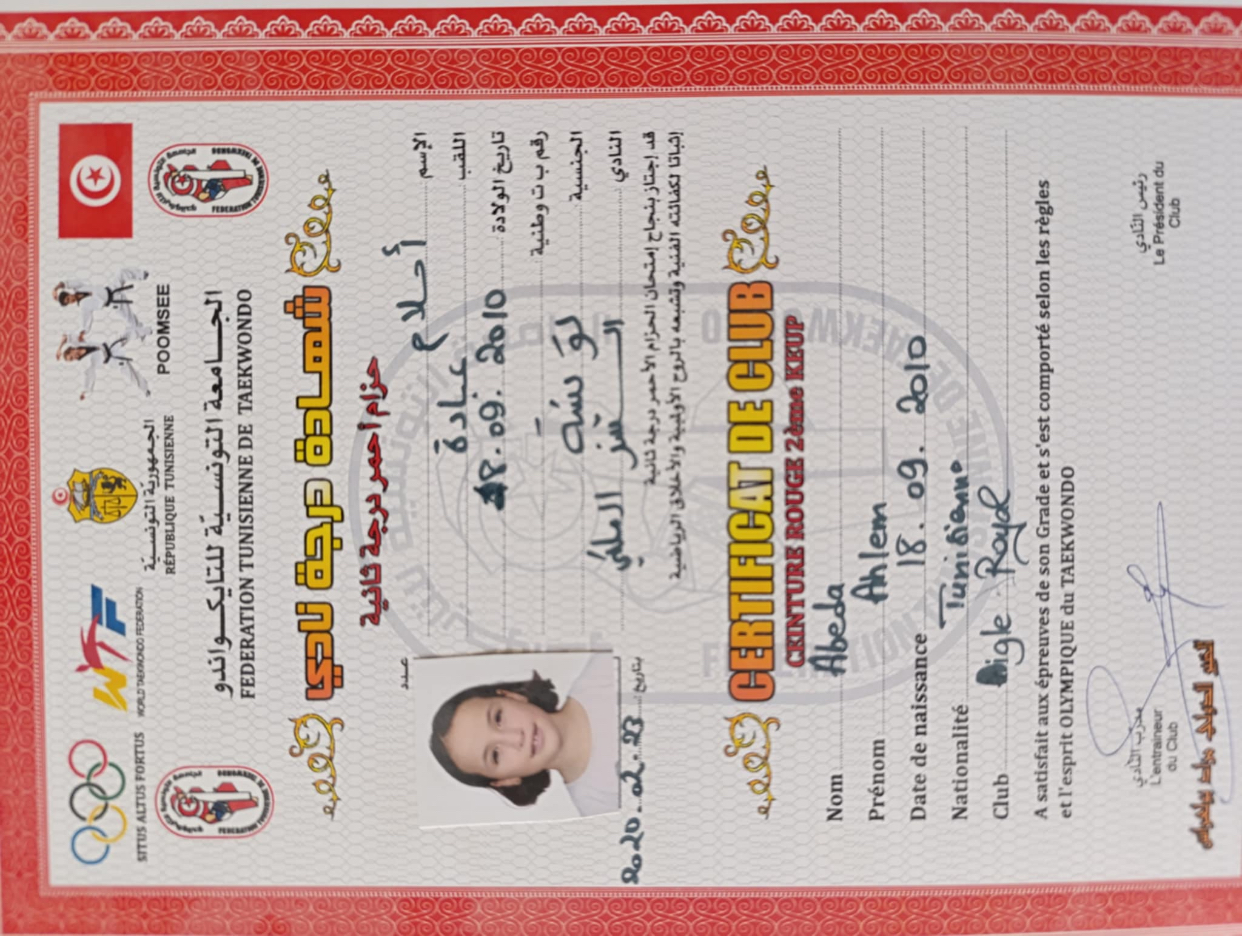 SITUS ALTUS FORTUS
WORLD TAEKWONDO FEDERATION
الجمهورية التونسية
RÉPUBLIQUE TUNISIENNE
POOMSEE
الجامعة التونسية للتايكواندو
FEDERATION TUNISIENNE DE TAEKWONDO
شهادة درجة نادي
حزام أحمر درجة ثانية
عدد
الإسم أحلام
اللقب عبادة
تاريخ الولادة 18.09.2010
رقم ب ت وطنية
الجنسية تونسية
النادي النسر الملكي
قد إجتاز بنجاح إمتحان الحزام الأحمر درجة ثانية
إثباتا لكفائته الفنية وتشبعه بالروح الأولمبية والأخلاق الرياضية
بتاريخ 2020.02.23
CERTIFICAT DE CLUB
CEINTURE ROUGE 2ème KEUP
Nom Abeda
Prénom Ahlem
Date de naissance 18.09.2010
Nationalité Tunisienne
Club Aigle Royal
A satisfait aux épreuves de son Grade et s'est comporté selon les règles
et l'esprit OLYMPIQUE du TAEKWONDO
مدرب النادي
L'entraineur
du Club
رئيس النادي
Le Président du
Club